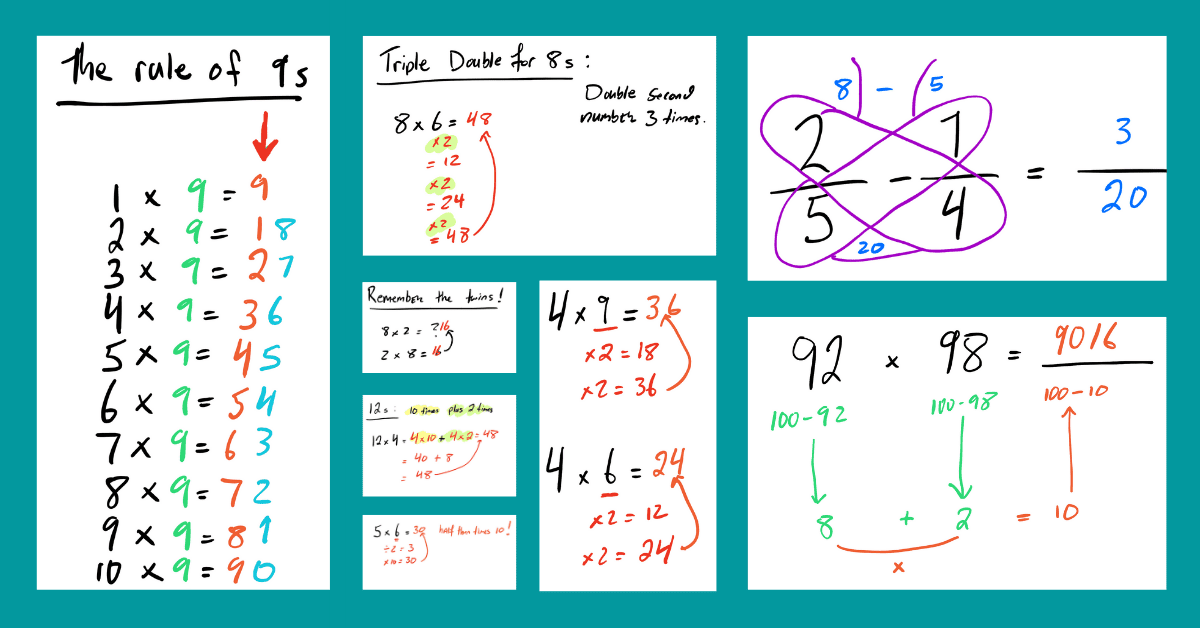 The rule of 9s
1 x 9 = 9
2 x 9 = 18
3 x 9 = 27
4 x 9 = 36
5 x 9 = 45
6 x 9 = 54
7 x 9 = 63
8 x 9 = 72
9 x 9 = 81
10 x 9 = 90
Triple Double for 8s :
Double second
number 3 times.
8 x 6 = 48
x2
= 12
x2
= 24
x2
= 48
Remember the twins!
8 x 2 = ?16
2 x 8 = 16
12s: 10 times plus 2 times
12 x 4 = 4 x 10 + 4 x 2 = 48
= 40 + 8
= 48
5 x 6 = 30 half then times 10!
÷2 = 3
x10 = 30
4 x 9 = 36
x2 = 18
x2 = 36
4 x 6 = 24
x2 = 12
x2 = 24
8 - 5
2/5 - 1/4 = 3/20
20
92 x 98 = 9016
100-92 100-98 100-10
8 + 2 = 10
x